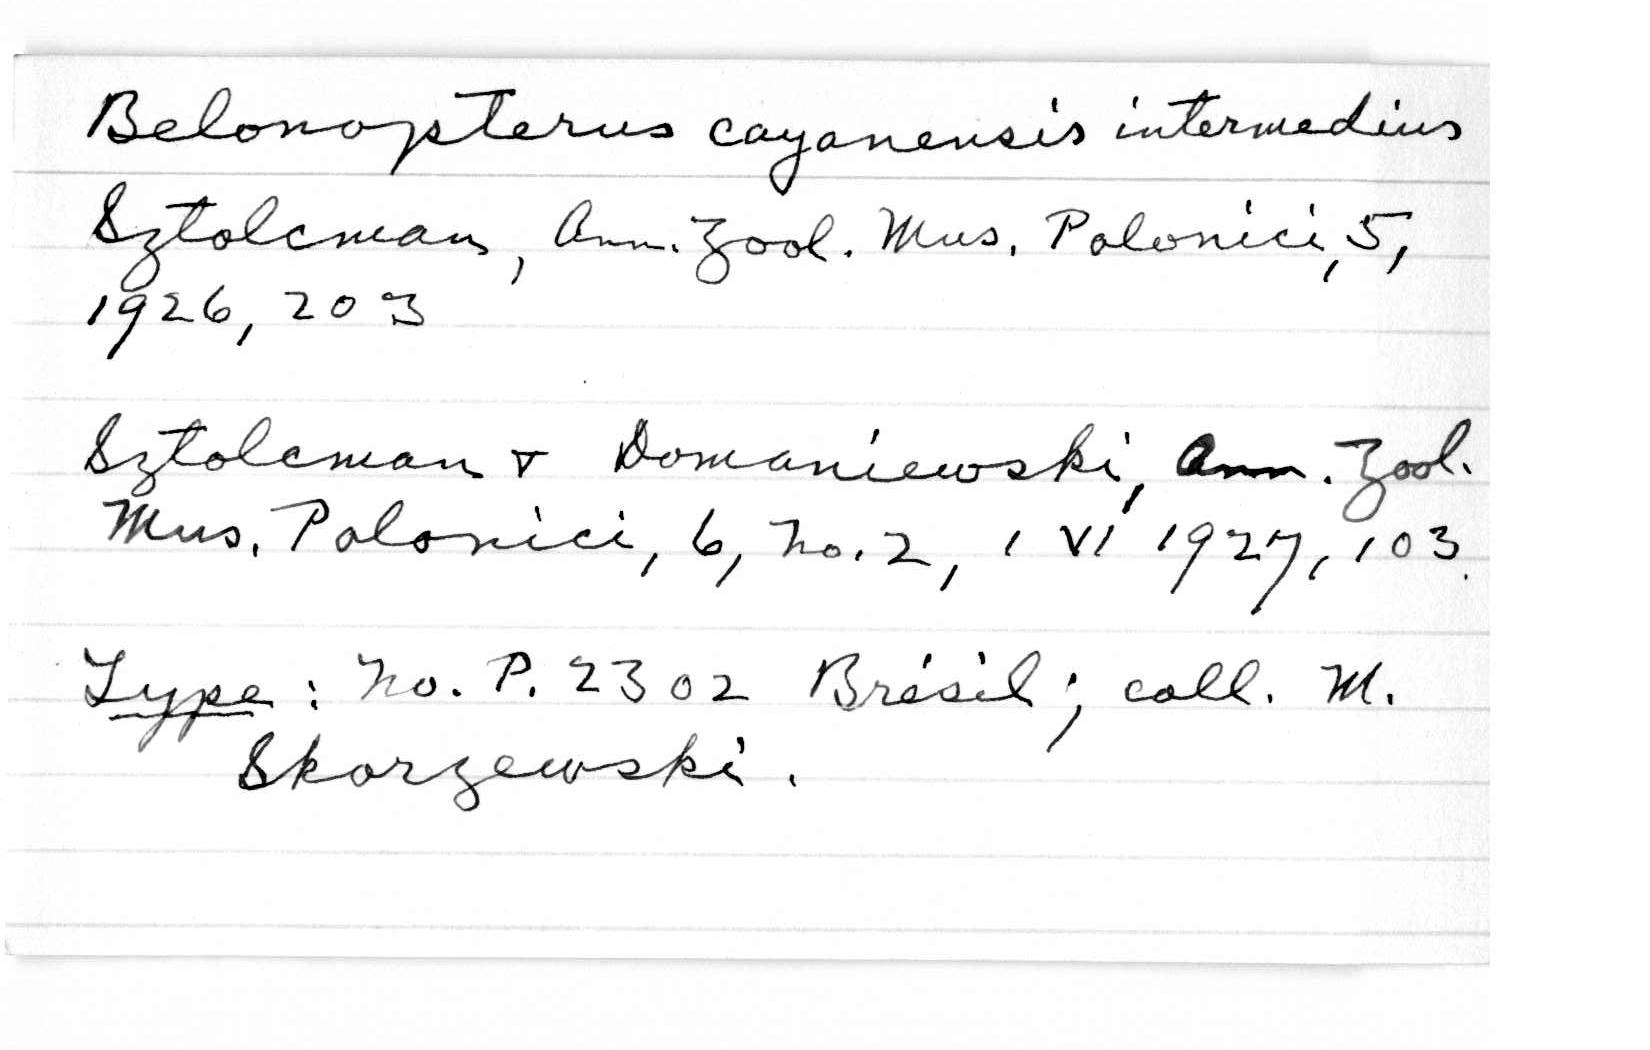 Belonopterus cayanensis intermedius
Sztolcman, Ann. Zool. Mus. Polonici, 5,
1926, 203
Sztolcman & Domaniewski, Ann. Zool.
Mus. Polonici, 6, No. 2, 1 VI 1927, 103.
Type: No. P. 2302 Brésil; coll. M.
Skorzewski.